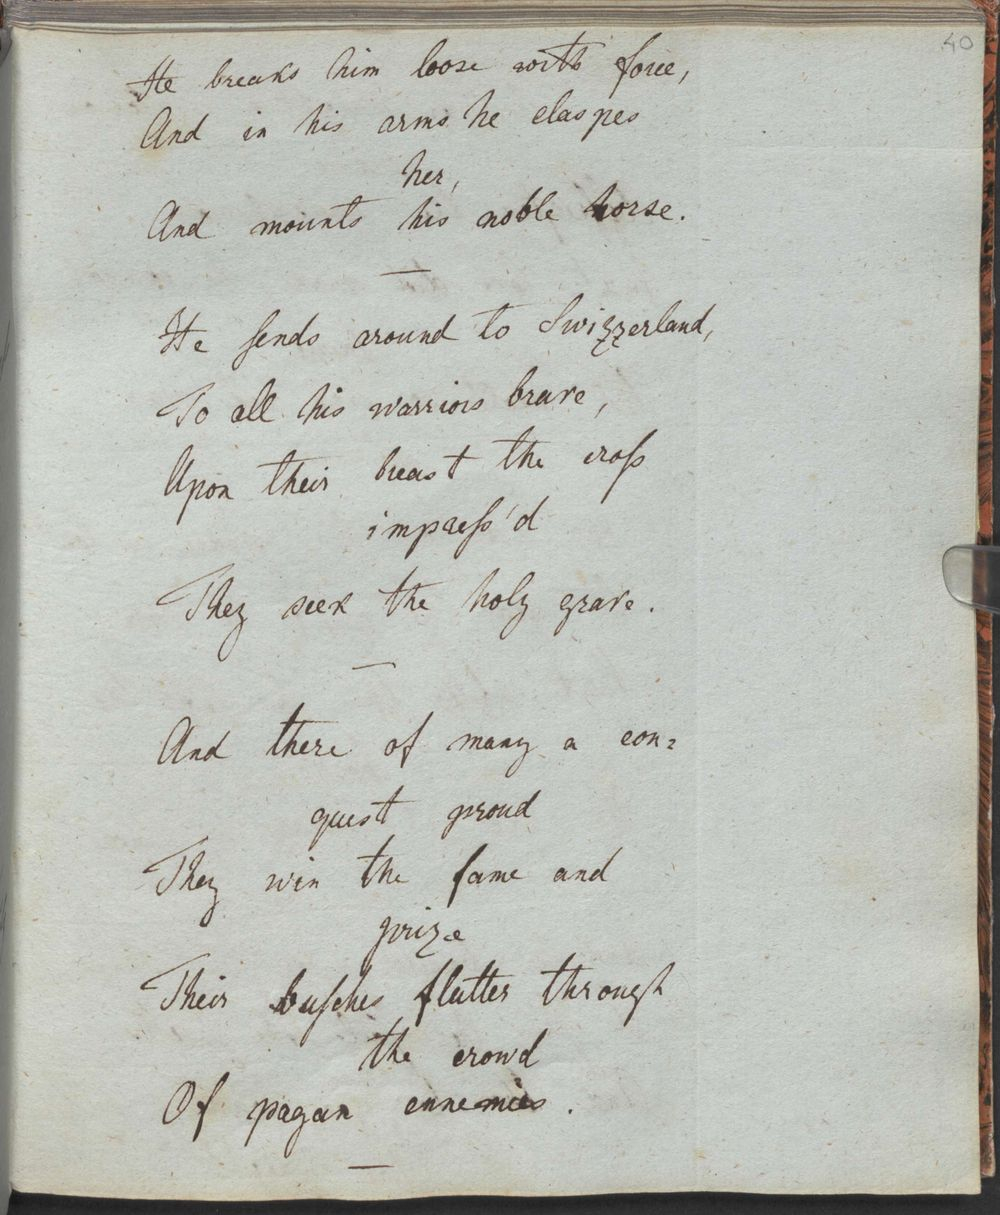 40
He breaks him loose with force,
And in his arms he claspes
her,
And mounts his noble horse.
He sends around to Swizzerland,
To all his warriors brave,
Upon their breast the croſs
impreſs'd
They seek the holy grave.
And there of many a con=
quest proud
They win the fame and
prize
Their buſches flutter through
the crowd
Of pagan ennemies.